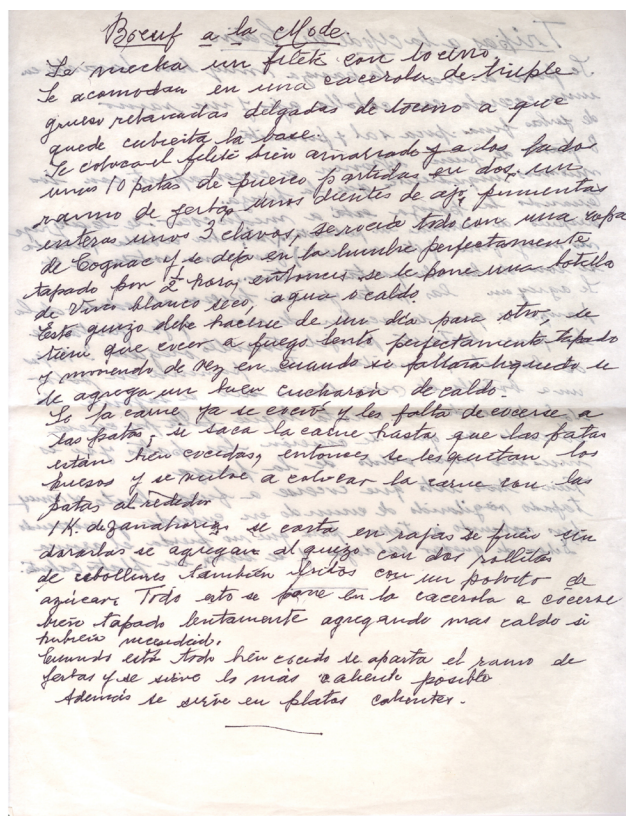 Boeuf a la Mode.
Se mecha un filete con tocino
Se acomodan en una cacerola de triple
grueso rebanadas delgadas de tocino a que
quede cubierta la base.
Se coloca el filete bien amarrado y a los lados
unas 10 patas de puerco partidas en dos, un
ramo de yerbas unos dientes de ajo, pimientas
enteras unos 3 clavos, se rocia todo con una copa
de Cognac y se deja en la lumbre perfectamente
tapado por ½ hora, entonces se le pone una botella
de Vino blanco seco, agua o caldo,
Este guizo debe hacerse de un dia para otro, se
tiene que cocer a fuego lento perfectamente tapado
y moviendo de vez en cuando si faltara liquido se
le agrega un buen cucharón de caldo.
Si la carne ya se coció y les falta de cocerse a
las patas, se saca la carne hasta que las patas
están bien cocidas, entonces se les quitan los
huesos y se vuelve a colocar la carne con las
patas al rededor
1 K. de zanahorias se corta en rajas se frien sin
dorarlas se agregan al guizo con dos rollitos
de cebollines también fritos con un polvito de
azúcar. Todo esto se pone en la cacerola a cocerse
bien tapado lentamente agregando mas caldo si
hubiera necesidad.
Cuando está todo bien cocido se aparta el ramo de
yerbas y se sirve lo más caliente posible
Además se sirve en platos calientes.